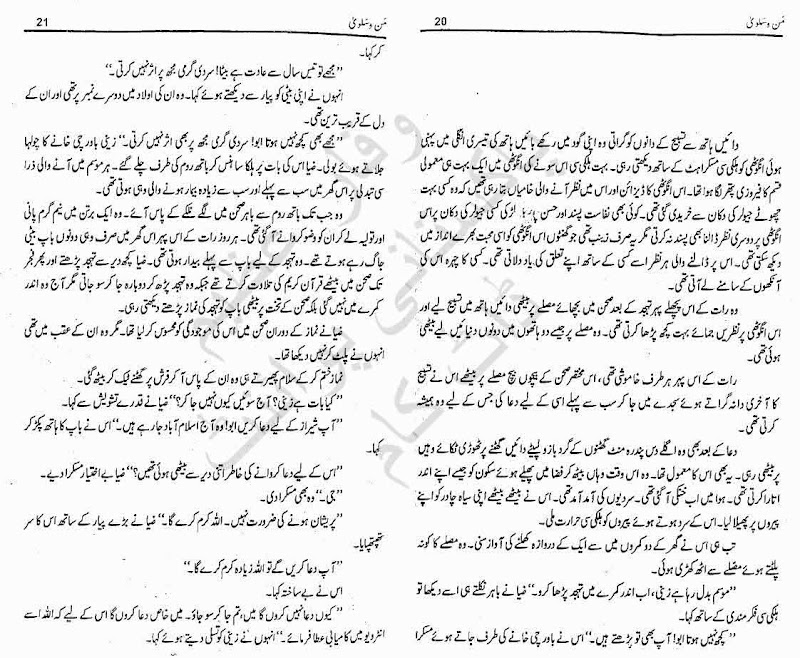 مَن و سَلویٰ
20
دائیں ہاتھ سے تسبیح کے دانوں کو گراتی وہ اپنی گود میں رکھے بائیں ہاتھ کی تیسری انگلی میں پہنی
ہوئی انگوٹھی کو ہلکی سی مسکراہٹ کے ساتھ دیکھتی رہی۔ بہت ہلکی سی اس سونے کی انگوٹھی میں ایک بہت ہی معمولی
قسم کا فیروزی پتھر لگا ہوا تھا۔ اس انگوٹھی کا ڈیزائن اور اس میں نظر آنے والی خامیاں بتا رہی تھیں کہ وہ کسی بہت
چھوٹے جیولر کی دکان سے خریدی گئی تھی۔ کوئی بھی نفاست پسند اور حسن پارہ لڑکی کسی جیولر کی دکان پر اس
انگوٹھی پر دوسری نظر ڈالنا بھی پسند نہ کرتی مگر یہ صرف زینب تھی جو گھنٹوں اس انگوٹھی کو اسی محبت بھرے انداز میں
دیکھ سکتی تھی۔ اس پر ڈالنے والی ہر نظر اسے کسی کے ساتھ اپنے تعلق کی یاد دلاتی تھی۔ کسی کا چہرہ اس کی
آنکھوں کے سامنے لے آتی تھی۔
وہ رات کے اس پچھلے پہر تہجد کے بعد صحن میں بچھائے مصلے پر بیٹھی دائیں ہاتھ میں تسبیح لیے اور
اس انگوٹھی پر نظریں جمائے بہت کچھ پڑھا کرتی تھی۔ وہ مصلے پر جیسے دو ہاتھوں میں دونوں دنیائیں لیے بیٹھی
ہوئی تھی۔
رات کے اس پہر ہر طرف خاموشی تھی، اس مختصر صحن کے بیچوں بیچ مصلے پر بیٹھے اس نے تسبیح
کا آخری دانہ گراتے ہوئے سجدے میں جا کر سب سے پہلے اسی کے لیے دعا کی جس کے لیے وہ ہمیشہ
کرتی تھی۔
دعا کے بعد بھی وہ اگلے دس پندرہ منٹ گھٹنوں کے گرد بازو لپیٹے دائیں گھٹنے پر ٹھوڑی ٹکائے وہیں
پر بیٹھی رہی۔ یہ بھی اس کا معمول تھا۔ وہ اس وقت وہاں بیٹھ کر فضا میں پھیلے ہوئے سکون کو جیسے اپنے اندر
اتارا کرتی تھی۔ ہوا میں اب خنکی آ گئی تھی۔ سردیوں کی آمد آمد تھی۔ اس نے بیٹھے بیٹھے اپنی سیاہ چادر کو اپنے
پیروں پر پھیلا لیا۔ اس کے سرد ہوتے ہوئے پیروں کو ہلکی سی حرارت ملی۔
تب ہی اس نے گھر کے دو کمروں میں سے ایک کے دروازہ کھلنے کی آواز سنی۔ وہ مصلے کا کونہ
پلٹتے ہوئے مصلے سے اٹھ کھڑی ہوئی۔
’’موسم بدل رہا ہے زینی، اب اندر کمرے میں تہجد پڑھا کرو۔‘‘ ضیا نے باہر نکلتے ہی اسے دیکھا تو
ہلکی سی فکرمندی کے ساتھ کہا۔
’’کچھ نہیں ہوتا ابو! آپ بھی تو پڑھتے ہیں۔‘‘ اس نے باورچی خانے کی طرف جاتے ہوئے مسکرا
مَن و سَلویٰ
21
کر کہا۔
’’مجھے تو تیس سال سے عادت ہے بیٹا! سردی گرمی مجھ پر اثر نہیں کرتی۔‘‘
انہوں نے اپنی بیٹی کو پیار سے دیکھتے ہوئے کہا۔ وہ ان کی اولاد میں دوسرے نمبر پر تھی اور ان کے
دل کے قریب ترین تھی۔
’’مجھے بھی کچھ نہیں ہوتا ابو! سردی گرمی مجھ پر بھی اثر نہیں کرتی۔‘‘ زینی باورچی خانے کا چولہا
جلاتے ہوئے بولی۔ ضیا اس کی بات پر ہلکا سا ہنس کر باتھ روم کی طرف چلے گئے۔ ہر موسم میں آنے والی ذرا
سی تبدیلی پر اس گھر میں سب سے پہلے اور سب سے زیادہ بیمار ہونے والی وہی ہوتی تھی۔
وہ جب تک باتھ روم سے باہر صحن میں لگے نلکے کے پاس آئے۔ وہ ایک برتن میں نیم گرم پانی
اور تولیہ لے کر ان کو وضو کروانے آ گئی تھی۔ ہر روز رات کے اس پہر اس گھر میں صرف وہی دونوں باپ بیٹی
جاگ رہے ہوتے تھے۔ وہ تہجد کے لیے باپ سے پہلے بیدار ہوتی تھی۔ ضیا کچھ دیر سے تہجد پڑھتے اور پھر فجر
تک صحن میں بیٹھے قرآن کریم کی تلاوت کرتے تھے جبکہ وہ تہجد پڑھ کر دوبارہ جا کر سو جاتی مگر آج وہ اندر
کمرے میں نہیں گئی بلکہ صحن کے تخت پر بیٹھی باپ کو تہجد کی نماز پڑھتے دیکھتی رہی۔
ضیا نے نماز کے دوران صحن میں اس کی موجودگی کو محسوس کر لیا تھا۔ مگر وہ ان کے عقب میں تھی
انہوں نے پلٹ کر نہیں دیکھا تھا۔
نماز ختم کر کے سلام پھیرتے ہی وہ ان کے پاس آ کر فرش پر گھٹنے ٹیک کر بیٹھ گئی۔
’’کیا بات ہے زینی؟ آج سوئیں کیوں نہیں جا کر؟‘‘ ضیا نے قدرے تشویش سے کہا۔
’’آپ شیراز کے لیے دعا کریں ابو! وہ آج اسلام آباد جا رہے ہیں۔‘‘ اس نے باپ کا ہاتھ پکڑ کر
کہا۔
’’اس کے لیے دعا کروانے کی خاطر اتنی دیر سے بیٹھی ہوئی تھیں؟‘‘ ضیا بے اختیار مسکرا دیے۔
’’جی۔‘‘ وہ بھی مسکرا دی۔
’’پریشان ہونے کی ضرورت نہیں۔ اللہ کرم کرے گا۔‘‘ ضیا نے بڑے پیار کے ساتھ اس کا سر
تھپتھپایا۔
’’آپ دعا کریں گے تو اللہ زیادہ کرم کرے گا۔‘‘
اس نے بے ساختہ کہا۔
’’کیوں دعا نہیں کروں گا میں، تم جا کر سو جاؤ۔ میں خاص دعا کروں گا اس کے لیے کہ اللہ اسے
انٹرویو میں کامیابی عطا فرمائے۔‘‘ انہوں نے زینی کو تسلی دیتے ہوئے کہا۔